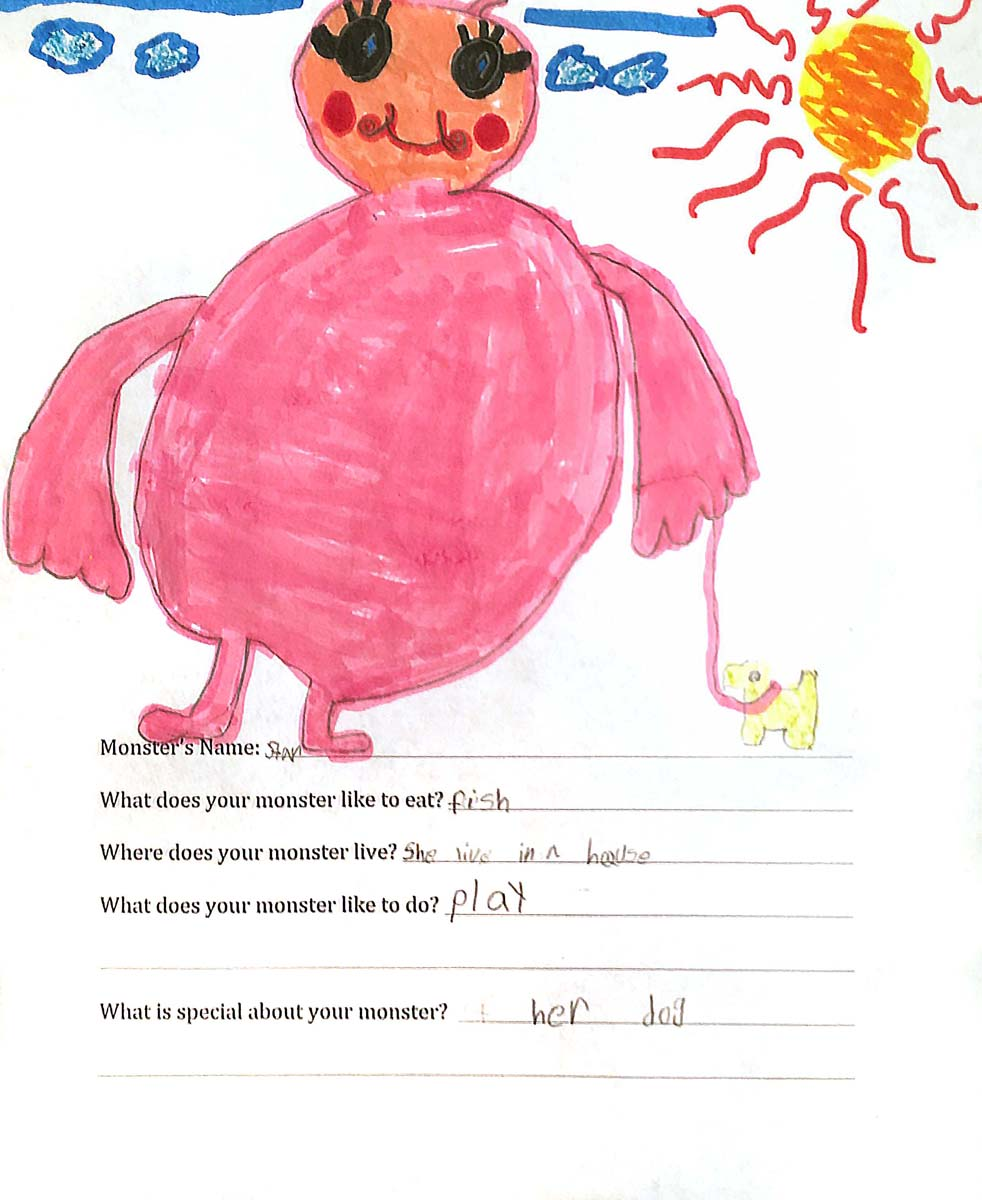 Monster's Name: Star
What does your monster like to eat? fish
Where does your monster live? She live in a house
What does your monster like to do? play
What is special about your monster? her dog